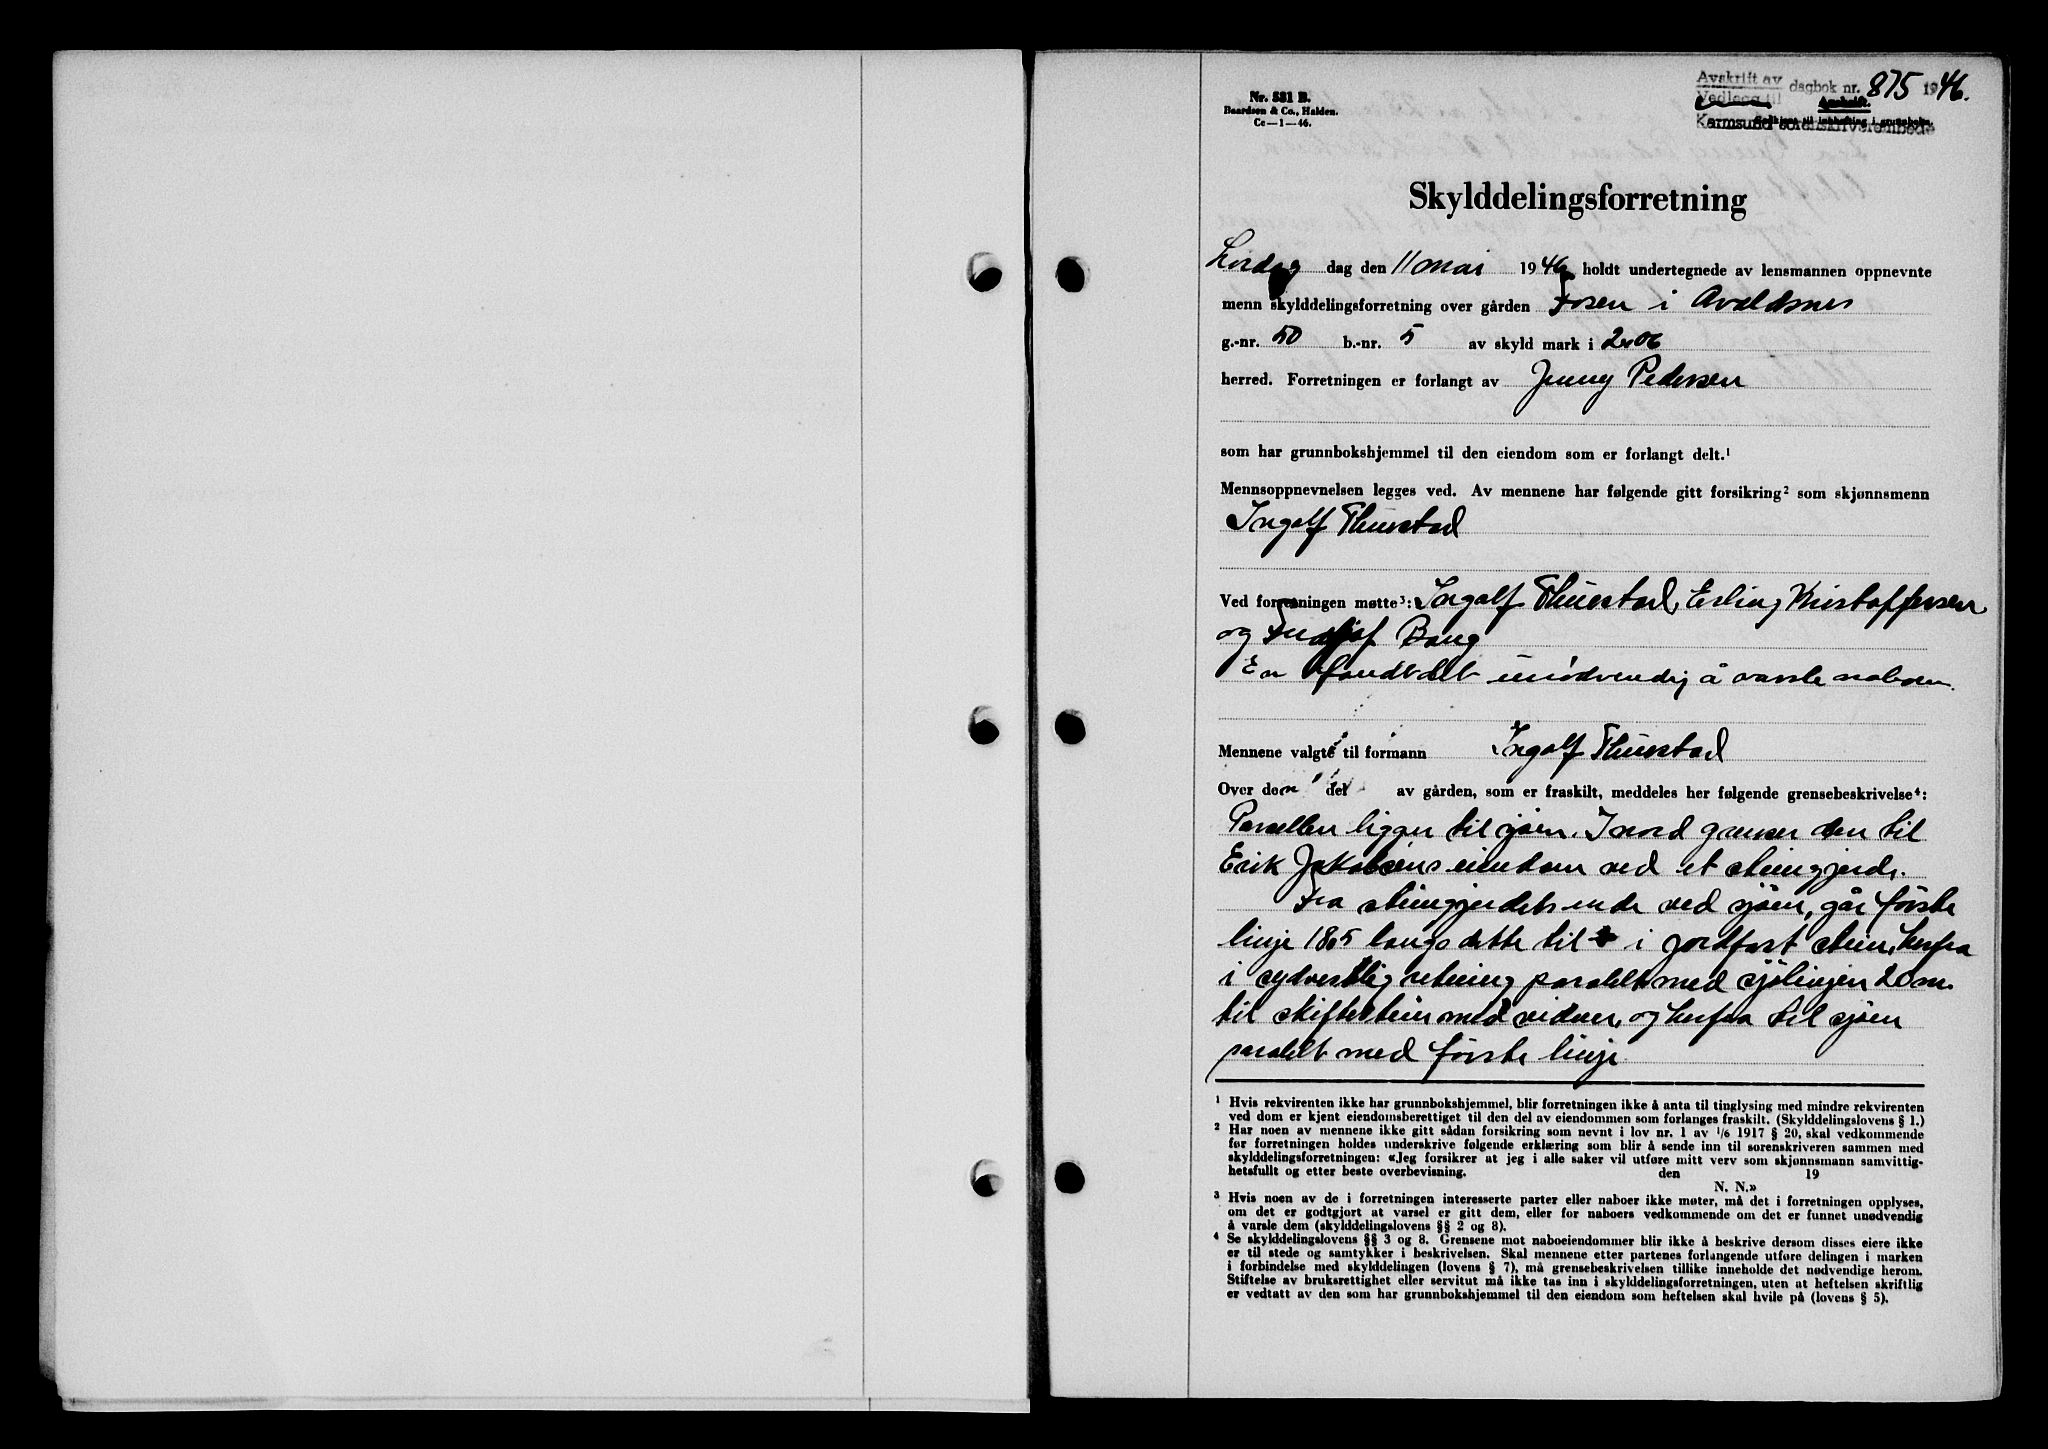 Avskrift av
Vedlegg til dagbok nr. 875 1946.
Avskrift.
Karmsund sorenskriverembede
Nr. 531 B.
Baardsen & Co., Halden.
Cc—1—46.
Skylddelingsforretning
Lørdag dag den 11 mai 1946 holdt undertegnede av lensmannen oppnevnte
menn skylddelingsforretning over gården Fosen i Avaldsnes
g.-nr. 50 b.-nr. 5 av skyld mark i 2.06
herred. Forretningen er forlangt av Jenny Pedersen
som har grunnbokshjemmel til den eiendom som er forlangt delt.¹
Mennsoppnevnelsen legges ved. Av mennene har følgende gitt forsikring² som skjønnsmenn
Ingolf Thuestad
Ved forretningen møtte³: Ingolf Thuestad, Erling Kristoffersen
og Bang
En fandt det unødvendig å varsle naboen.
Mennene valgte til formann Ingolf Thuestad
Over den del av gården, som er fraskilt, meddeles her følgende grensebeskrivelse⁴:
Parsellen ligger til sjøen. I nord grenser den til
Erik Jakobsens eiendom ved et steingjerde.
Fra steingjerdets ende ved sjøen, går første
linje 18.5 langs dette til i jordfast stein, herfra
i sydvestlig retning paralelt med sjølinjen 20 m.
til skiftestein med vidner, og herfra til sjøen
paralelt med første linje
¹ Hvis rekvirenten ikke har grunnbokshjemmel, blir forretningen ikke å anta til tinglysing med mindre rekvirenten
ved dom er kjent eiendomsberettiget til den del av eiendommen som forlanges fraskilt. (Skylddelingslovens § 1.)
² Har noen av mennene ikke gitt sådan forsikring som nevnt i lov nr. 1 av 1/6 1917 § 20, skal vedkommende
før forretningen holdes underskrive følgende erklæring som blir å sende inn til sorenskriveren sammen med
skylddelingsforretningen: «Jeg forsikrer at jeg i alle saker vil utføre mitt verv som skjønnsmann samvittig-
hetsfullt og etter beste overbevisning. den 19
N. N.»
³ Hvis noen av de i forretningen interesserte parter eller naboer ikke møter, må det i forretningen opplyses,
om det er godtgjort at varsel er gitt dem, eller for naboers vedkommende om det er funnet unødvendig
å varsle dem (skylddelingslovens §§ 2 og 8).
⁴ Se skylddelingslovens §§ 3 og 8. Grensene mot naboeiendommer blir ikke å beskrive dersom disses eiere ikke
er til stede og samtykker i beskrivelsen. Skal mennene etter partenes forlangende utføre delingen i marken
i forbindelse med skylddelingen (lovens § 7), må grensebeskrivelsen tillike inneholde det nødvendige herom.
Stiftelse av bruksrettighet eller servitut må ikke tas inn i skylddelingsforretningen, uten at heftelsen skriftlig
er vedtatt av den som har grunnbokshjemmel til den eiendom som heftelsen skal hvile på (lovens § 5).